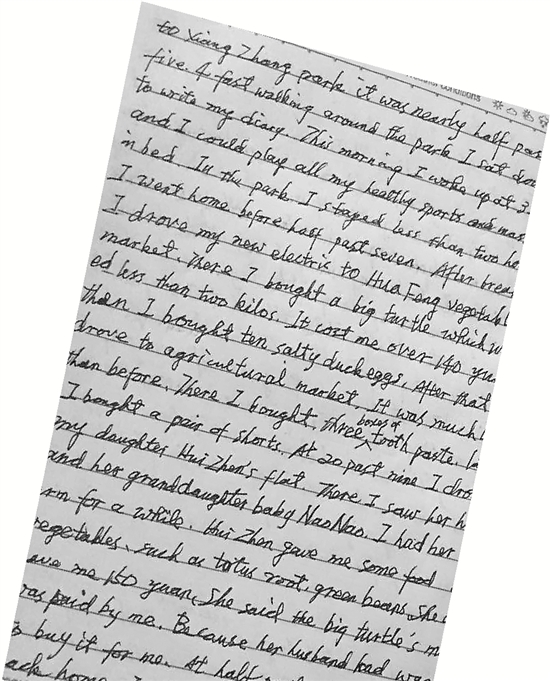 conditions
to Xiang Zhang park it was nearly half pas
five. A fast walking around the park I sat dow
to write my diary. This morning I woke up at 3.
and I could play all my healthy sports and mas
in bed. In the park I stayed less than two ho
I went home before half past seven. After brea
I drove my new electric to Hua Feng vegetabl
market. There I bought a big turtle which w
ed less than two kilos. It cost me over 140 yua
then I bought ten salty duck eggs. After that
drove to agricultural market, It was much
than before. There I bought three boxes of tooth paste. La
I bought a pair of shorts. At 20 past nine I dro
my daughter Hui Zhen's flat There I saw her h
and her granddaughter baby NaoNao. I had her
rm for a while. Hui Zhen gave me some food
vegetables, such as totus root, green beans. She
ave me 150 yuan, She said the big turtle's m
as paid by me. Because her husband had
o buy it for me. At half
ack home. I